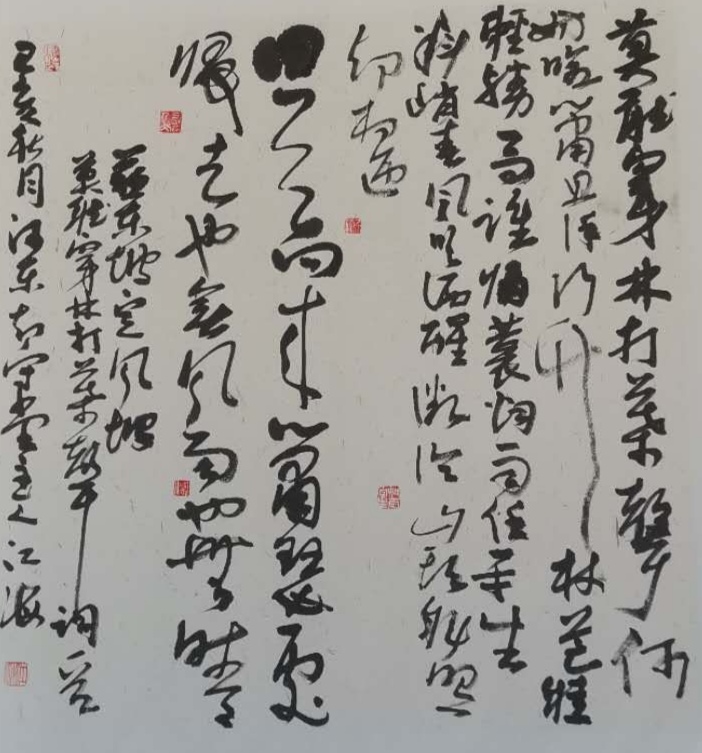 莫聽穿林打葉聲何
妨吟嘯且徐行竹杖芒鞋
輕勝馬誰怕蓑烟雨任平生
料峭春風吹酒醒微冷山頭斜照
卻相迎
回首向來蕭瑟處
歸去也無風雨也無晴
蘇東坡定風坡
莫聽穿林打葉聲詞
己亥秋月江東守堂主人江海